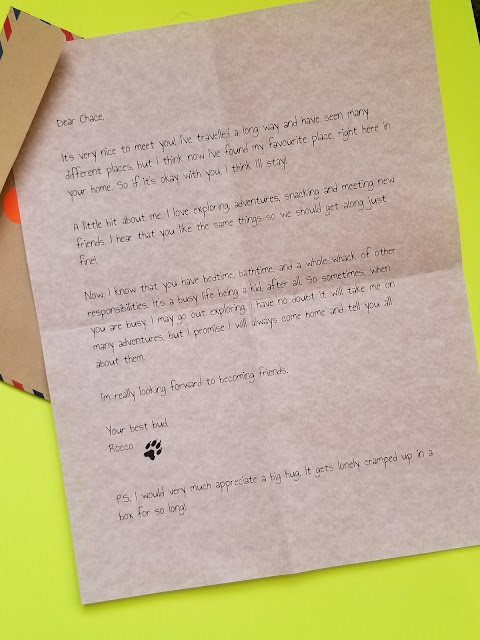 Dear Chace,
It's very nice to meet you. I've travelled a long way and have seen many
different places, but I think now I've found my favourite place, right here in
your home. So if it's okay with you, I think I'll stay!
A little bit about me: I love exploring, adventures, snacking and meeting new
friends. I hear that you like the same things so we should get along just
fine!
Now, I know that you have bedtime, bathtime, and a whole whack of other
responsibilities. It's a busy life being a kid, after all. So sometimes, when
you are busy, I may go out exploring. I have no doubt it will take me on
many adventures, but I promise I will always come home and tell you all
about them.
I'm really looking forward to becoming friends.
Your best bud,
Rocco
P.S. I would very much appreciate a big hug. It gets lonely cramped up in a
box for so long!